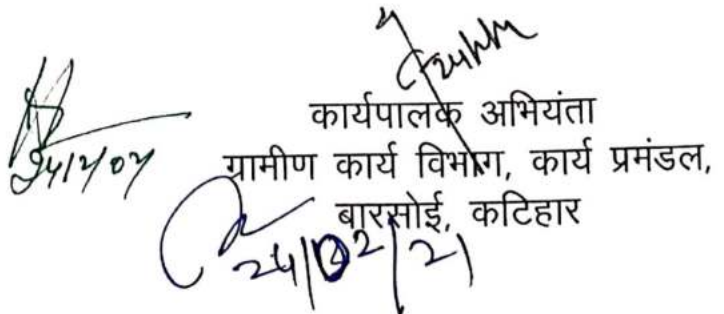 कार्यपालक अभियंता
ग्रामीण कार्य विभाग, कार्य प्रमंडल,
बारसोई, कटिहार
24/02/21